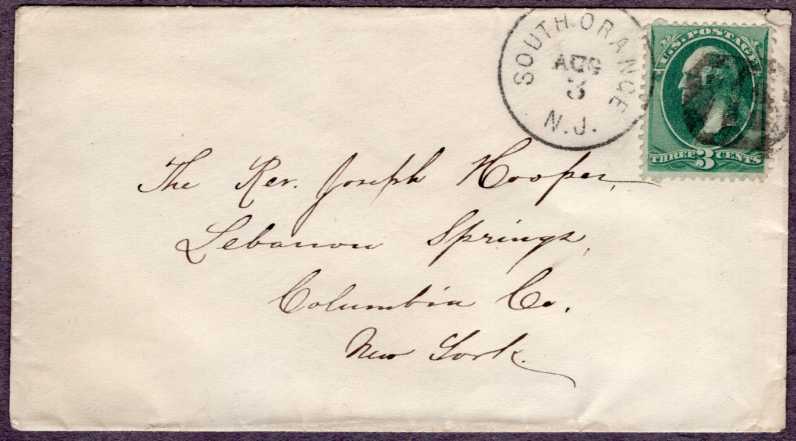 SOUTH ORANGE
AUG
3
N.J.
U.S. POSTAGE
THREE 3 CENTS
The Rev. Joseph Hooper,
Lebanon Springs,
Columbia Co.
New York.